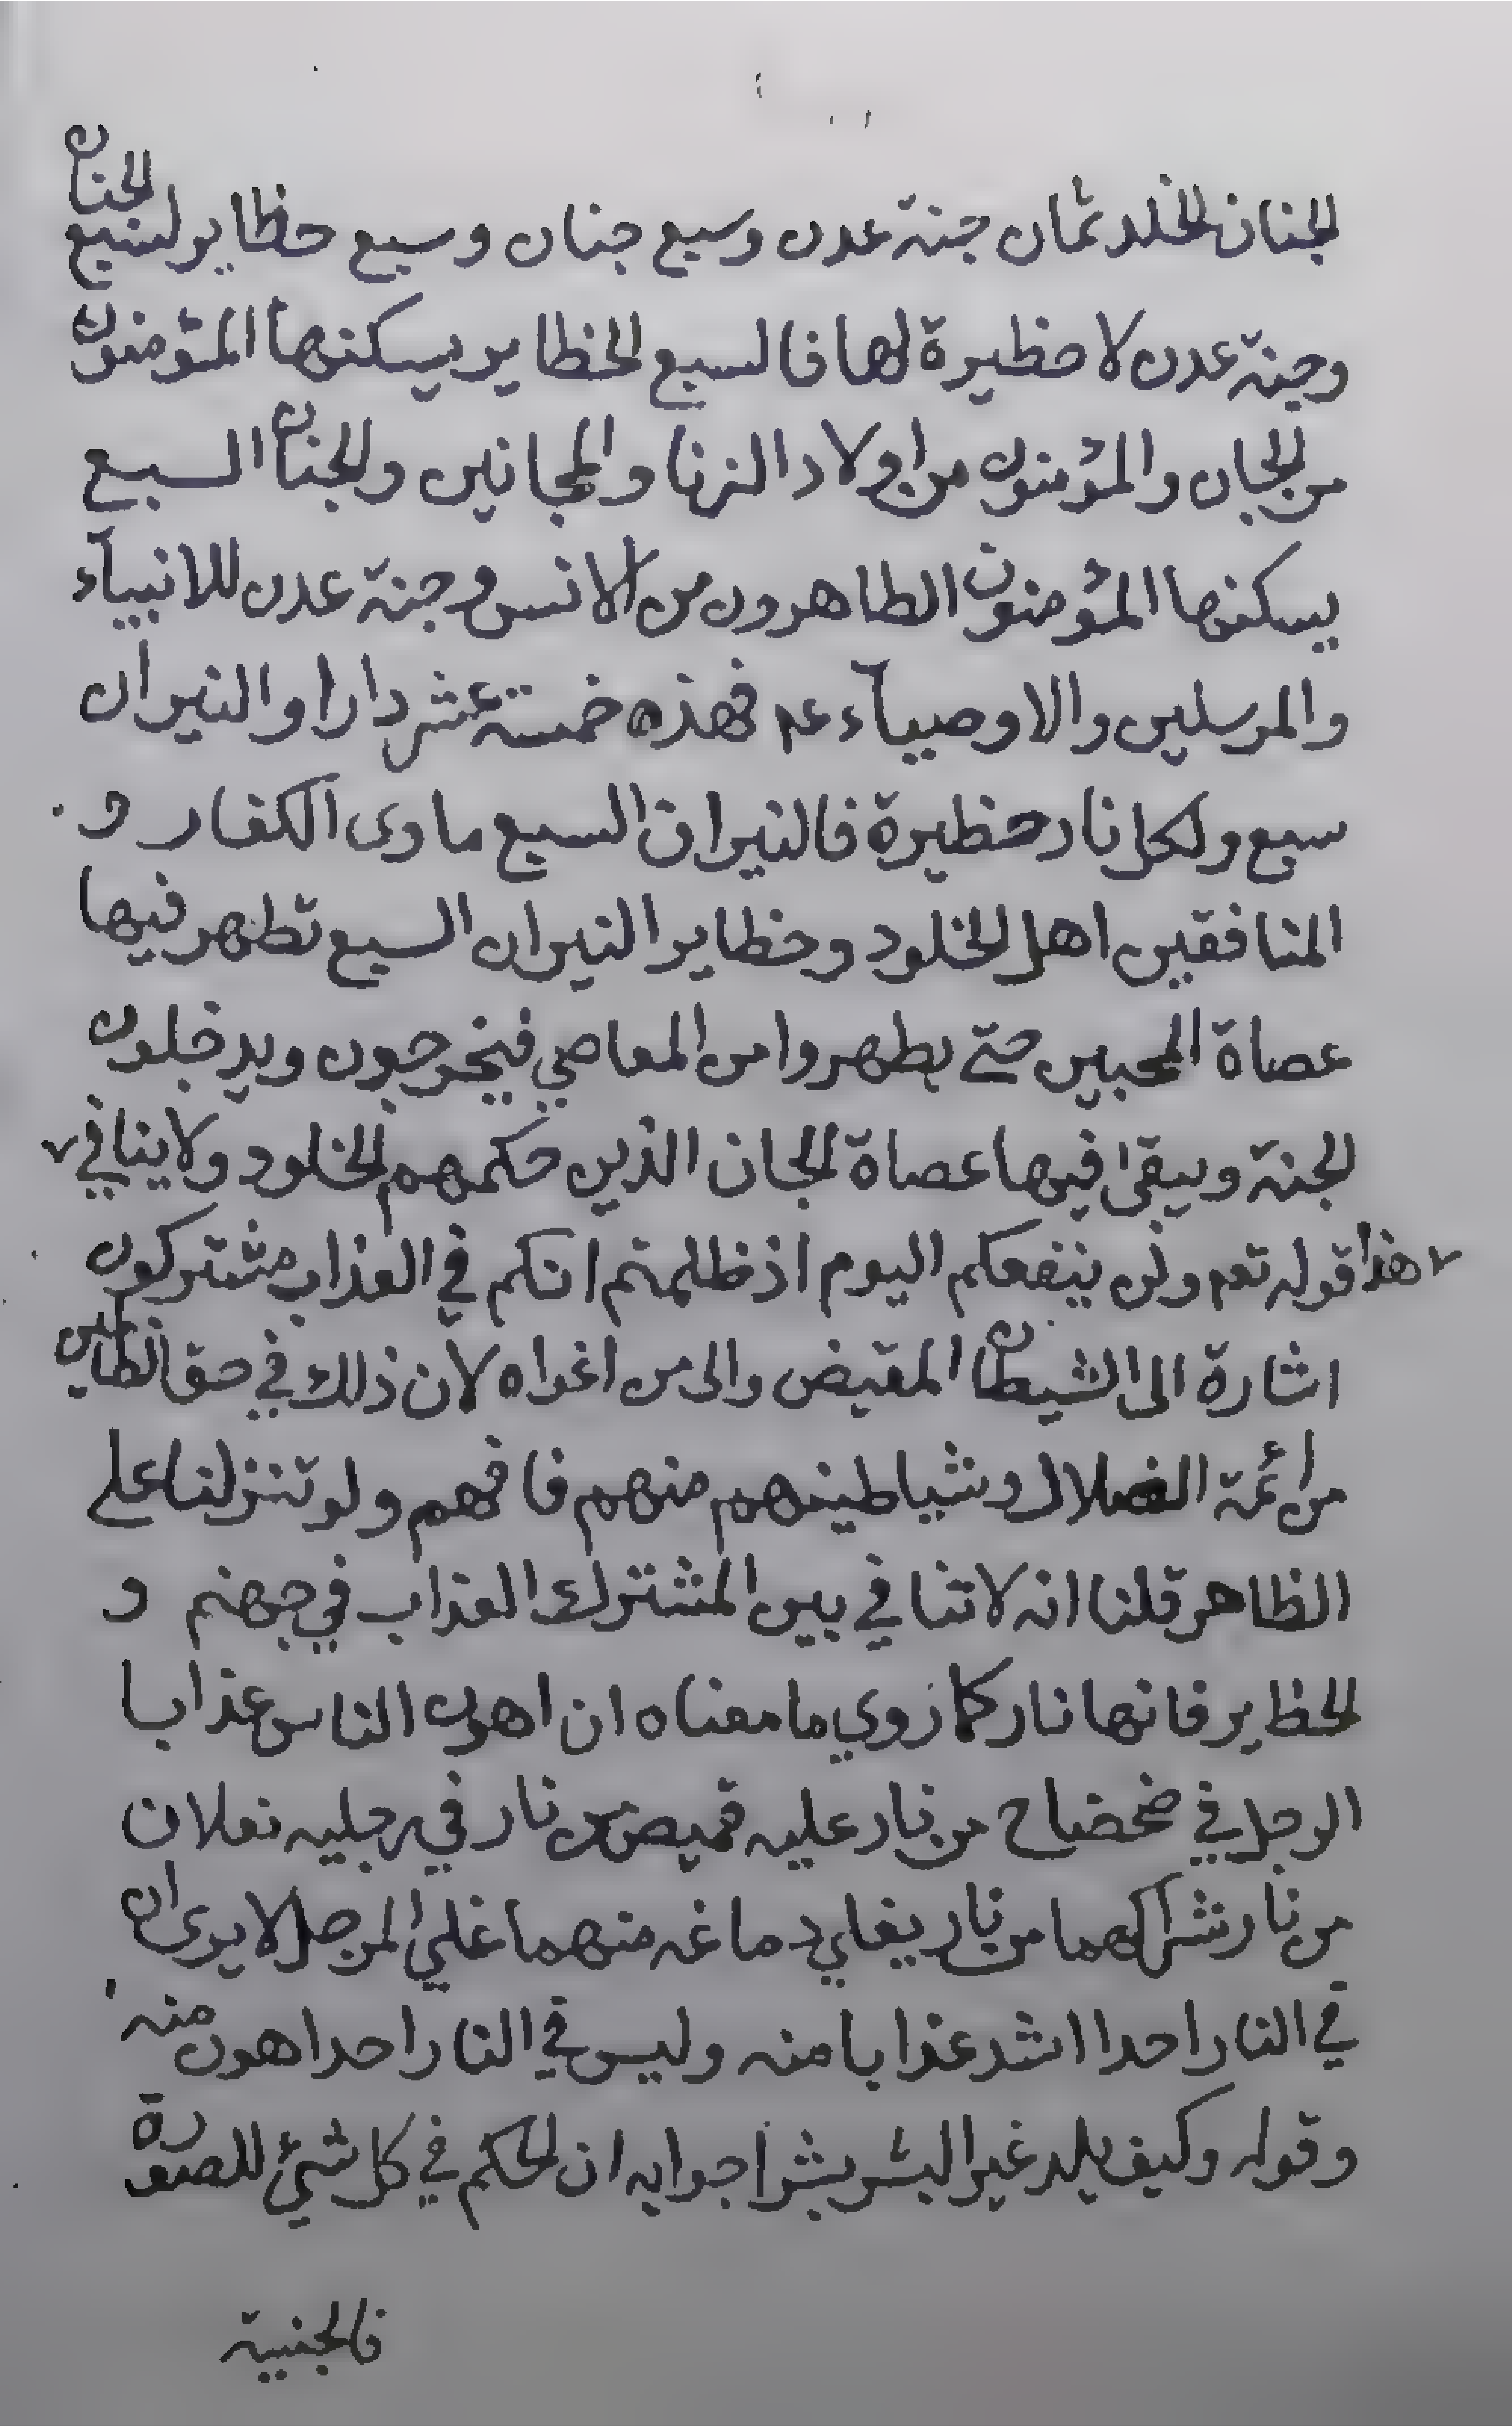 الجنان الخلد ثمان جنة عدن وسبع جنان وسبع حظاير لسبع الجنان
وجنة عدن لا حظيرة لها فالسبع الحظاير يسكنها المؤمنون
من الجان والمؤمنون من اولاد الزنا والمجانين والجنان السبع
يسكنها المؤمنون الطاهرون من الانس وجنة عدن للانبيآء
والمرسلين والاوصيآء عم فهذه خمسة عشر دارا والنيران
سبع ولكل نار حظيرة فالنيران السبع ماوى الكفار و
المنافقين اهل الخلود وحظاير النيران السبع تطهر فيها
عصاة المحبين حتى يطهروا من المعاصي فيخرجون ويدخلون
الجنة ويبقى فيها عصاة الجان الذين حكمهم الخلود ولا ينافي
هذا قوله تعم ولن ينفعكم اليوم اذ ظلمتم انكم في العذاب مشتركون
اشارة الى الشيطان المقيض والى من اغواه لان ذلك في حق الظالمين
من ائمة الضلال وشياطينهم منهم فافهم ولو تنزلنا على
الظاهر قلنا انه لا تنافي بين المشترك العذاب في جهنم و
الحظاير فانها نار كما روي ما معناه ان اهون الناس عذابا
الرجل في ضحضاح من نار عليه قميص من نار في رجليه نعلان
من نار شراكهما من نار يغلي دماغه منهما غلي المرجل لا يرى ان
في النار احدا اشد عذابا منه وليس في النار احد اهون منه
وقوله وكيف يلد غير البشر بشرا جوابه ان الحكم في كل شيئ للصورة
فالجنية